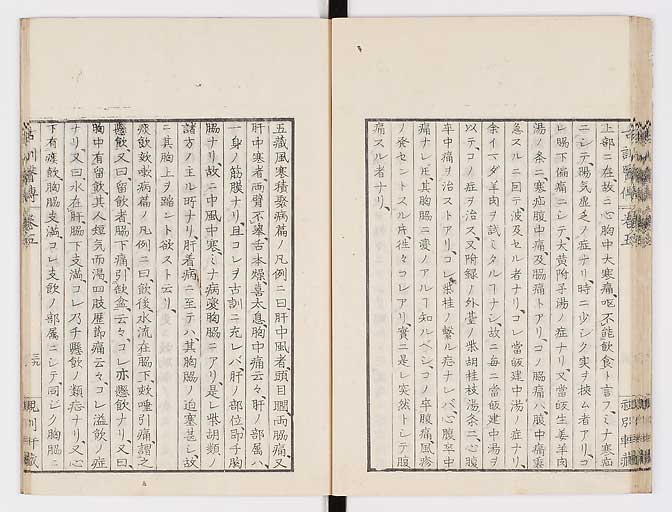 上部ニ在故ニ心胸中大寒痛嘔不能飲食ト言フ、ミナ寒疝
ニシテ、陽気虚乏ノ症ナリ、時ニ少シク実ヲ挾ム者アリ、コ
レ脇下偏痛ニシテ、大黄附子湯ノ症ナリ、又當皈生姜羊肉
湯ノ条ニ、寒疝腹中痛及脇痛トアリ、コノ脇痛ハ腹中痛
急スルニ因テ、波及セル者ナリ、コレ當皈建中湯ノ症ナリ、
余イマダ羊肉ヲ試ミタルヿナシ、故ニ毎ニ當皈建中湯ヲ
以テ、コノ症ヲ治ス、又附録ノ外臺ノ柴胡桂枝湯条ニ、心腹
卒中痛ヲ治ストアリ、コレ柴桂ノ繋ル疝ナレバ、心腹卒中
痛ナレ𪜈、其胸脇ニ変ノアルヿ知ルベシ、コノ卒腹痛風疹
ノ発セントスル片、往々コレアリ、實ニ是レ突然トシテ腹
痛スル者ナリ、
五藏風寒積聚病篇ノ凡例ニ曰、肝中風者、頭目瞤、両脇痛、又
肝中寒者、両臂不挙、舌本燥、喜太息、胸中痛云々、肝ノ部属ハ
一身ノ筋膜ナリ、且コレヲ古訓ニ充レバ、肝ノ部位即チ胸
脇ナリ、故ニ中風中寒、ミナ病変胸脇ニアリ、是レ柴胡類ノ
諸方ノ主ル所ナリ、肝着病ニ至テハ、其胸脇ノ迫塞甚シ、故
ニ其胸上ヲ蹈ント欲スト云リ、
痰飲欬嗽病篇ノ凡例ニ曰、飲後水流在脇下、欬唾引痛、謂之
懸飲、又曰、留飲者、脇下痛引缺盆云々、コレ亦懸飲ナリ、又曰、
胸中有留飲、其人短気而渇、四肢歴節痛云々、コレ溢飲ノ症
ナリ、又曰、水在肝、脇下支満、コレ乃チ懸飲ノ類症ナリ、又心
下有痰飲、胸脇支満、コレ支飲ノ部属ニシテ、同ジク胸脇ニ